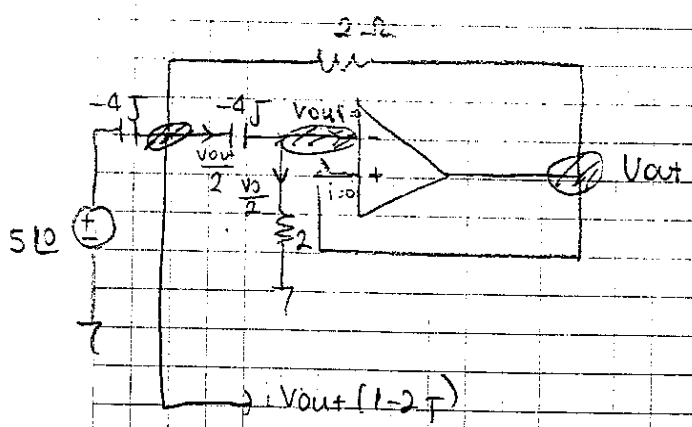 2 Ω
-4J
-4J
Vout
-
Vout
2
Vo
2
i=0
+
Vout
+
-
5∠0
2
Vout (1-2J)